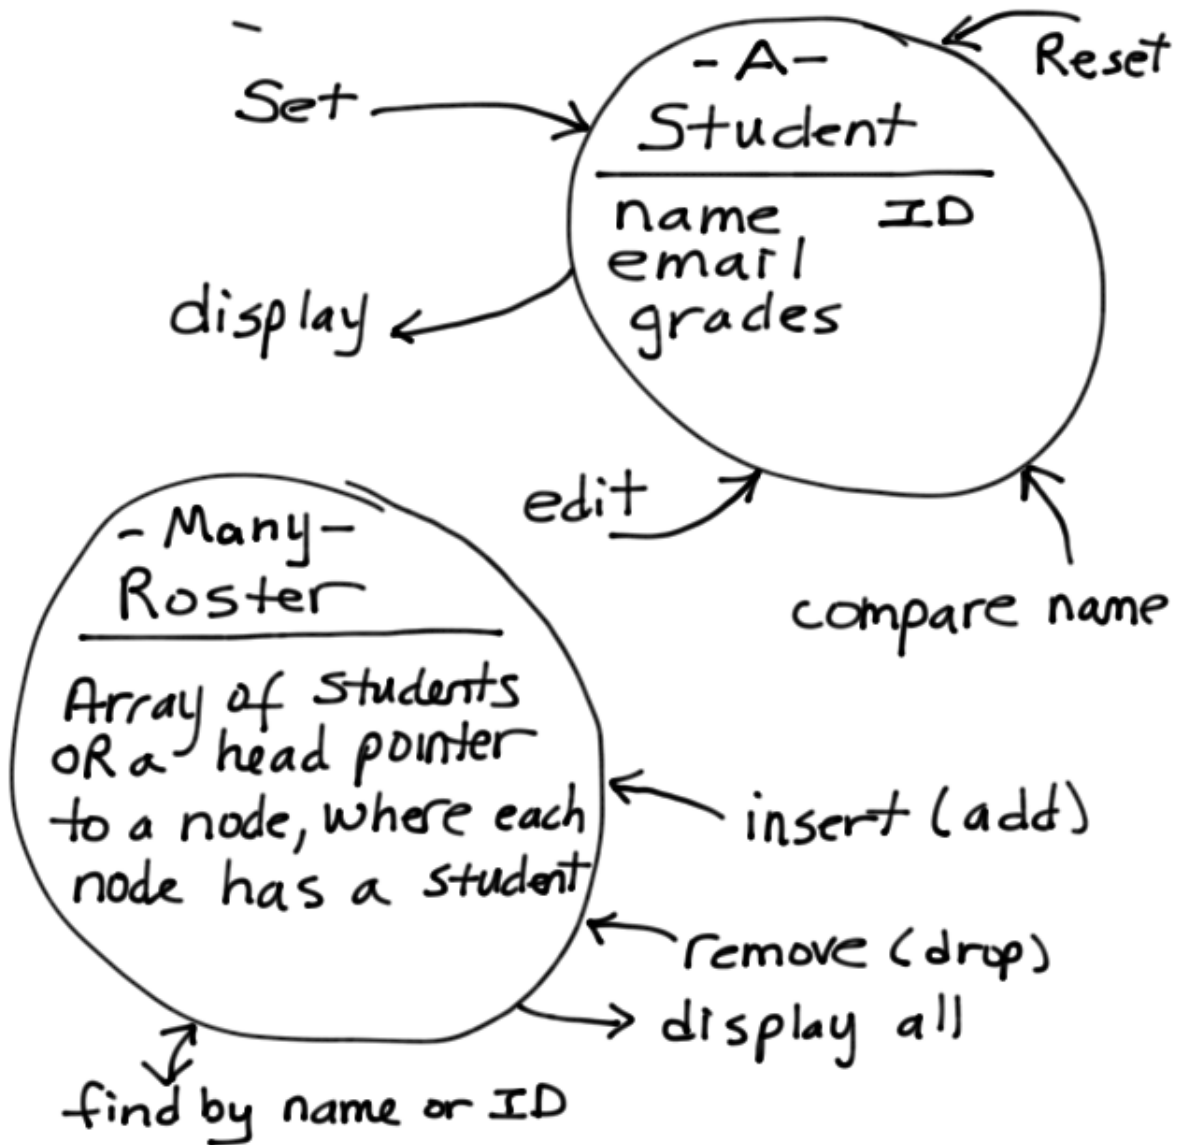 - A -
Reset
Set
Student
name ID
email
grades
display
edit
compare name
- Many -
Roster
Array of students
OR a head pointer
to a node, where each
node has a student
insert (add)
remove (drop)
display all
find by name or ID